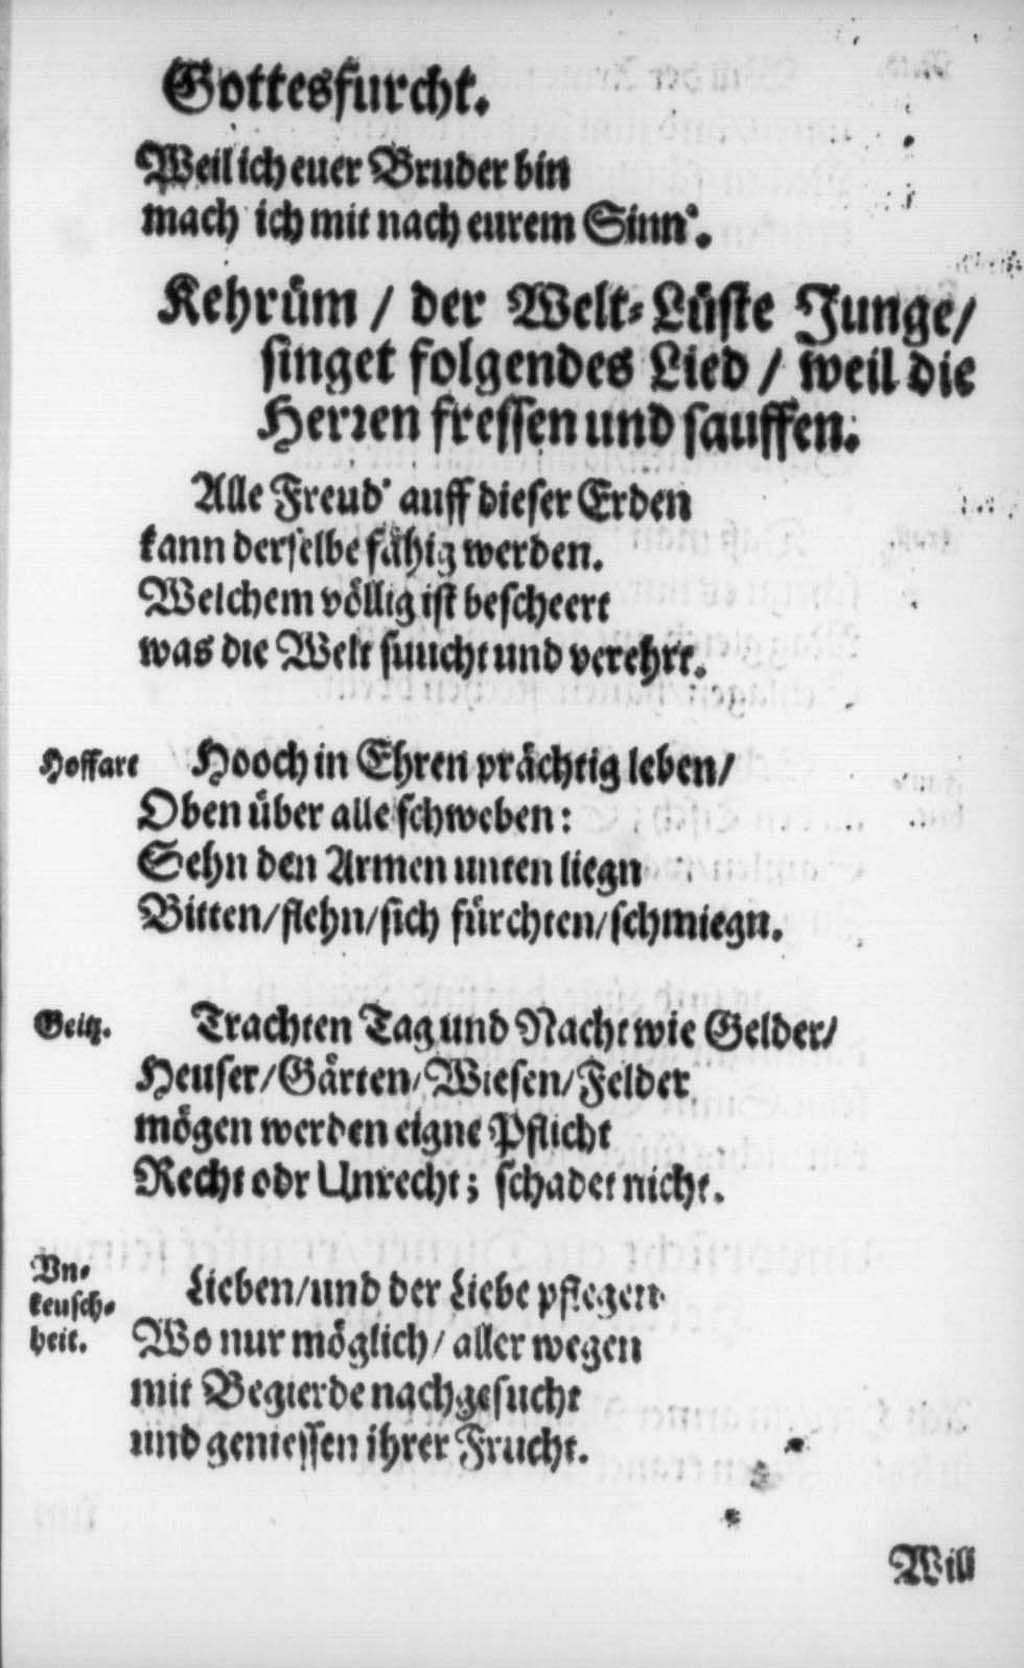 Gottesfurcht.
Weil ich euer Bruder bin
mach ich mit nach eurem Sinn'.
Kehrüm / der Welt-Lüste Junge/
singet folgendes Lied / weil die
Herren fressen und sauffen.
Alle Freud' auff dieser Erden
kann derselbe fähig werden.
Welchem völlig ist bescheert
was die Welt suucht und verehrt.
Hoffart Hooch in Ehren prächtig leben/
Oben über alle schweben:
Sehn den Armen unten liegn
Bitten/flehn/sich fürchten/schmiegn.
Geitz. Trachten Tag und Nacht wie Gelder/
Heuser/Gärten/Wiesen/Felder
mögen werden eigne Pflicht
Recht odr Unrecht; schadet nicht.
Vn-
keusch-
heit.
Lieben/und der Liebe pflegen
Wo nur möglich/aller wegen
mit Begierde nachgesucht
und geniessen ihrer Frucht.
Will